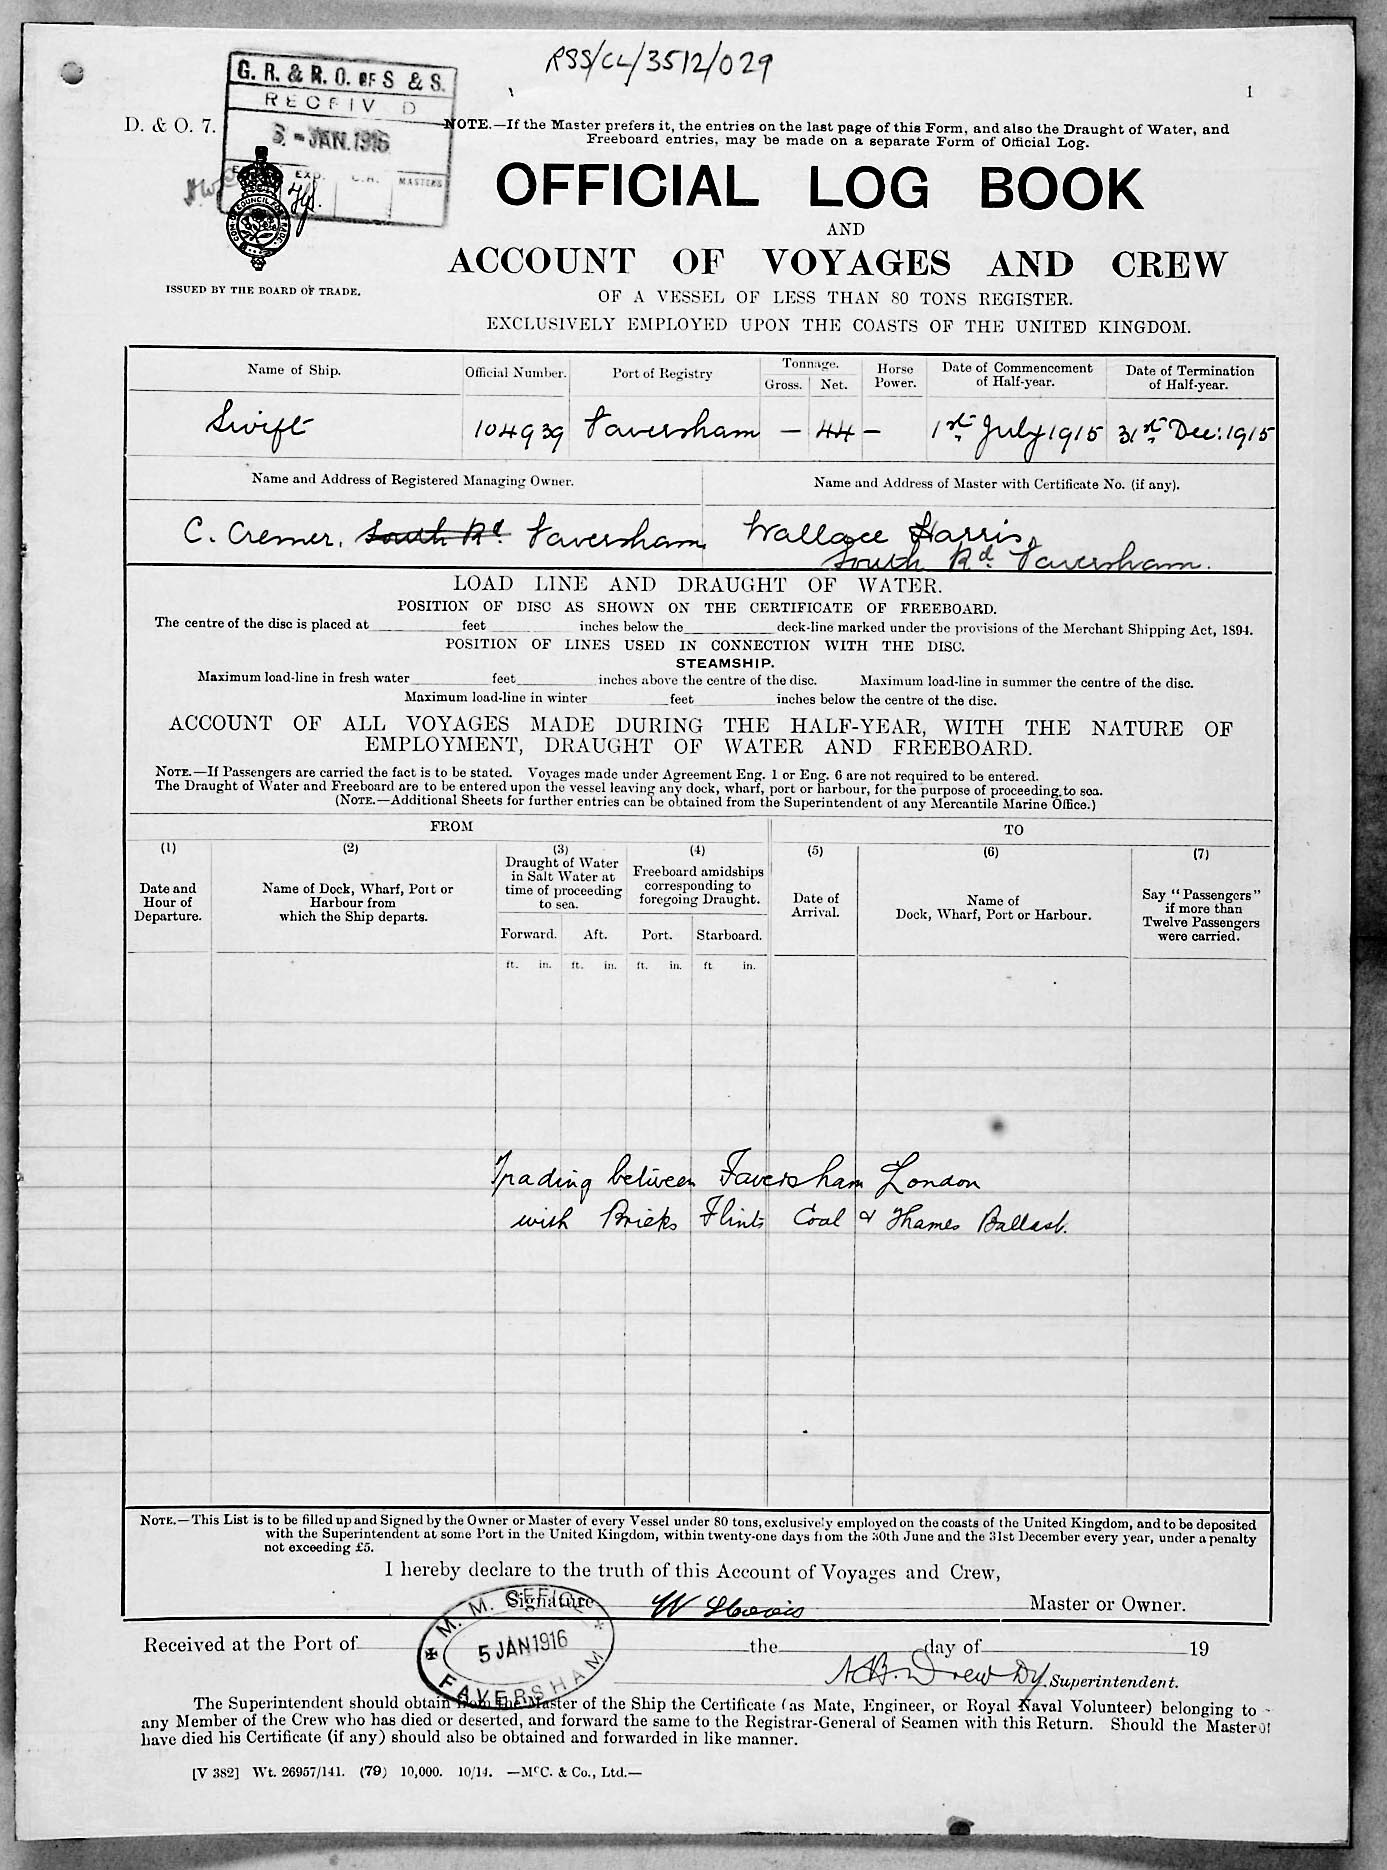 RSS/CL/3512/029
1
G. R. & R. O. OF S & S.
RECEIV D
JAN. 1916
EXP.
C.R.
MASTERS
D. & O. 7.
NOTE.—If the Master prefers it, the entries on the last page of this Form, and also the Draught of Water, and
Freeboard entries, may be made on a separate Form of Official Log.
OFFICIAL LOG BOOK
AND
ACCOUNT OF VOYAGES AND CREW
ISSUED BY THE BOARD OF TRADE.
OF A VESSEL OF LESS THAN 80 TONS REGISTER.
EXCLUSIVELY EMPLOYED UPON THE COASTS OF THE UNITED KINGDOM.
Name of Ship. Official Number. Port of Registry Tonnage. Gross. Net. Horse Power. Date of Commencement of Half-year. Date of Termination of Half-year.
Swift 104939 Faversham — 44 — 1st July 1915 31st Dec: 1915
Name and Address of Registered Managing Owner. Name and Address of Master with Certificate No. (if any).
C. Cremer, South Rd. Faversham Wallace Harris,
South Rd. Faversham.
LOAD LINE AND DRAUGHT OF WATER.
POSITION OF DISC AS SHOWN ON THE CERTIFICATE OF FREEBOARD.
The centre of the disc is placed at feet inches below the deck-line marked under the provisions of the Merchant Shipping Act, 1894.
POSITION OF LINES USED IN CONNECTION WITH THE DISC.
STEAMSHIP.
Maximum load-line in fresh water feet inches above the centre of the disc. Maximum load-line in summer the centre of the disc.
Maximum load-line in winter feet inches below the centre of the disc.
ACCOUNT OF ALL VOYAGES MADE DURING THE HALF-YEAR, WITH THE NATURE OF
EMPLOYMENT, DRAUGHT OF WATER AND FREEBOARD.
NOTE.—If Passengers are carried the fact is to be stated. Voyages made under Agreement Eng. 1 or Eng. 6 are not required to be entered.
The Draught of Water and Freeboard are to be entered upon the vessel leaving any dock, wharf, port or harbour, for the purpose of proceeding to sea.
(NOTE.—Additional Sheets for further entries can be obtained from the Superintendent of any Mercantile Marine Office.)
FROM TO
(1) (2) (3) (4) (5) (6) (7)
Date and Hour of Departure.
Name of Dock, Wharf, Port or Harbour from which the Ship departs.
Draught of Water in Salt Water at time of proceeding to sea.
Freeboard amidships corresponding to foregoing Draught.
Date of Arrival.
Name of Dock, Wharf, Port or Harbour.
Say "Passengers" if more than Twelve Passengers were carried.
Forward. Aft. Port. Starboard.
ft. in. ft. in. ft. in. ft in.
Trading between Faversham London
with Bricks Flints Coal & Thames Ballast.
NOTE.—This List is to be filled up and Signed by the Owner or Master of every Vessel under 80 tons, exclusively employed on the coasts of the United Kingdom, and to be deposited
with the Superintendent at some Port in the United Kingdom, within twenty-one days from the 30th June and the 31st December every year, under a penalty
not exceeding £5.
I hereby declare to the truth of this Account of Voyages and Crew,
Signature W Harris Master or Owner.
M. M. OFFICE
5 JAN 1916
FAVERSHAM
Received at the Port of the day of 19
A. B. Drew Dy. Superintendent.
The Superintendent should obtain from the Master of the Ship the Certificate (as Mate, Engineer, or Royal Naval Volunteer) belonging to
any Member of the Crew who has died or deserted, and forward the same to the Registrar-General of Seamen with this Return. Should the Master
have died his Certificate (if any) should also be obtained and forwarded in like manner.
[V 382] Wt. 26957/141. (79) 10,000. 10/14. —McC. & Co., Ltd.—